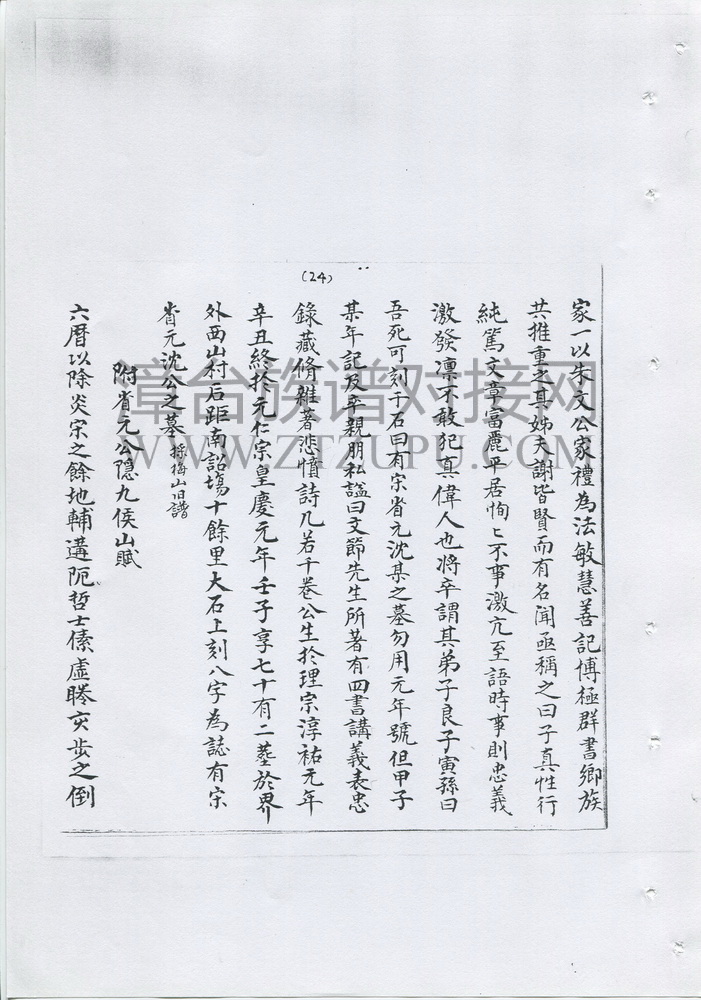 (24)
家一以朱文公家禮為法敏慧善記博極群書鄉族
共推重之其姊夫謝皆賢而有名聞亟稱之曰子真性行
純篤文章富麗平居恂〻不事激亢至語時事則忠義
激發凛不敢犯真偉人也將卒謂其弟子良子寅孫曰
吾死可刻于石曰有宋省元沈某之墓勿用元年號但甲子
某年記及卒親朋私謚曰文節先生所著有四書講義表忠
錄藏脩雜著悲憤詩几若千卷公生於理宗淳祐元年
辛丑終於元仁宗皇慶元年壬子享七十有二塟於界
外西山村后距南詔塲十餘里大石上刻八字為誌有宋
省元沈公之墓 採梅山旧譜
附省元公隱九侯山賦
六曆以除炎宋之餘地輔遘阨哲士傃虛睠亥步之倒
漳台族谱对接网
WWW.ZTZUPU.COM